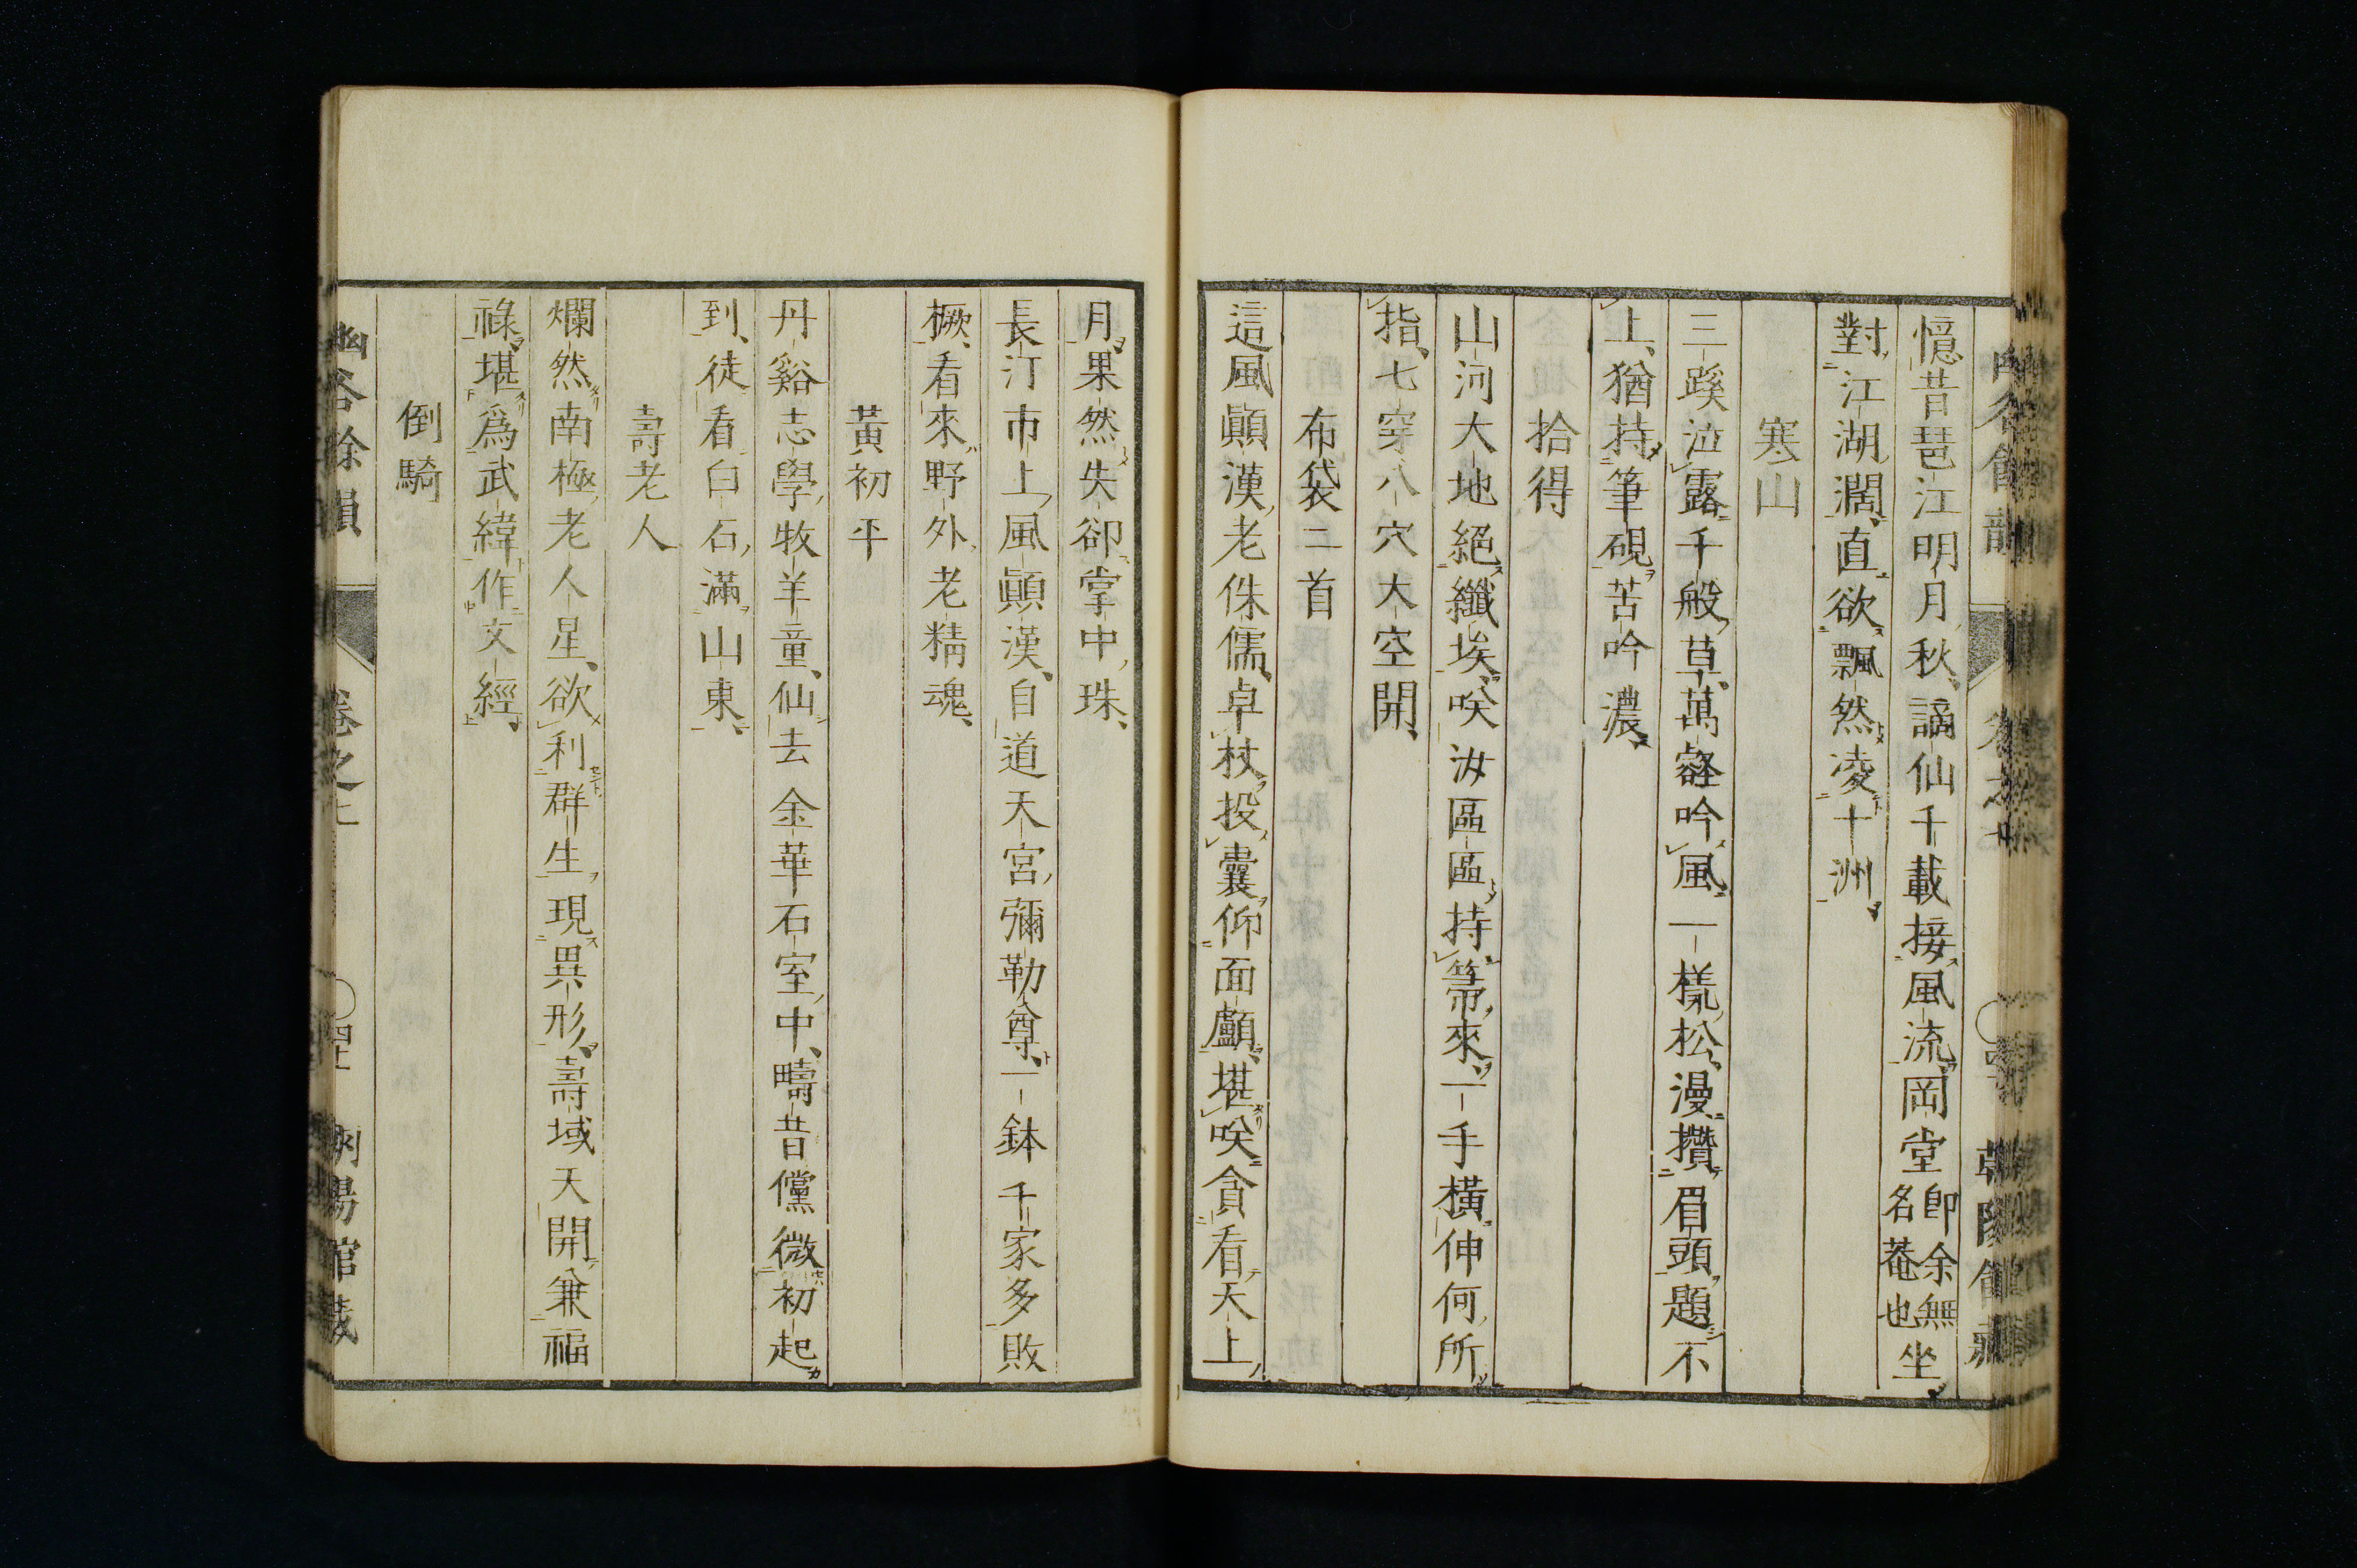 憶昔琶江明月秋謫仙千載接風流岡堂即余無名菴也坐
對江湖濶直欲飄然凌十洲
寒山
三蹊泣露千般草萬壑吟風一樣松漫攢眉頭題不
上猶持筆硯苦吟濃
拾得
山河大地絕纖埃咲汝區區持箒來一手橫伸何所
指七穿八穴大空開
布袋二首
這風顚漢老侏儒卓杖投囊仰面顱堪咲貪看天上
月果然失卻掌中珠
長汀市上風顚漢自道天宮彌勒尊一鉢千家多敗
橛看來野外老精魂
黃初平
丹谿志學牧羊童仙去金華石室中疇昔儻微初起
到徒看白石滿山東
壽老人
爛然南極老人星欲利群生現異形壽域天開兼福
祿堪爲武緯作文經
倒騎
幽谷餘韻 卷之上